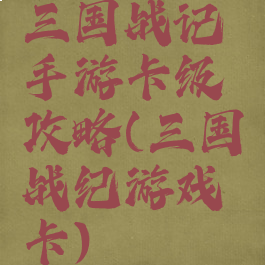 三国战记
手游卡级
攻略(三国
战纪游戏
卡)